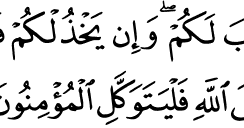 لَكُمْ ۖ وَإِن يَخْذُلْكُمْ
ٱللَّهِ فَلْيَتَوَكَّلِ ٱلْمُؤْمِنُونَ